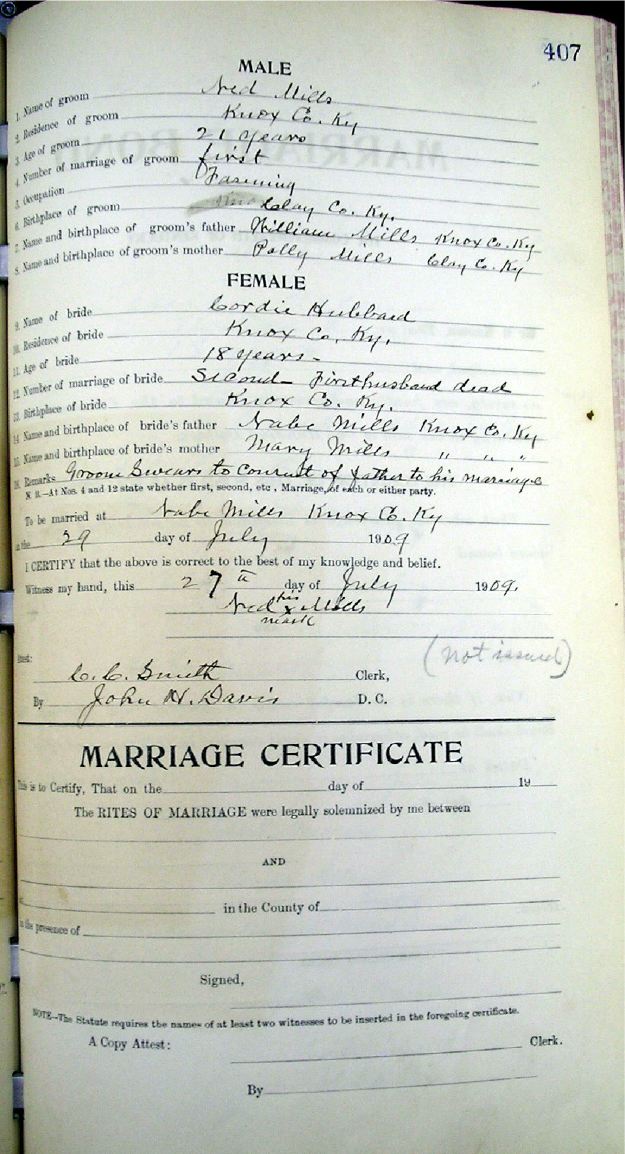 407
MALE
1. Name of groom Ned Mills
2. Residence of groom Knox Co. Ky
3. Age of groom 21 years
4. Number of marriage of groom first
5. Occupation Farming
6. Birthplace of groom Clay Co. Ky.
7. Name and birthplace of groom's father William Mills Knox Co. Ky
8. Name and birthplace of groom's mother Polly Mills Clay Co. Ky
FEMALE
9. Name of bride Cordie Hubbard
10. Residence of bride Knox Co. Ky.
11. Age of bride 18 years-
12. Number of marriage of bride Second- First husband dead
13. Birthplace of bride Knox Co. Ky.
14. Name and birthplace of bride's father Nabe Mills Knox Co. Ky
15. Name and birthplace of bride's mother Mary Mills " " "
16. Remarks Groom Swears to consent of father to his marriage
N. B.—At Nos. 4 and 12 state whether first, second, etc., Marriage, of each or either party.
To be married at Nabe Mills Knox Co. Ky
on the 29 day of July 1909
I CERTIFY that the above is correct to the best of my knowledge and belief.
Witness my hand, this 27th day of July 1909.
his
Ned x Mills
mark
(not issued)
Attest:
C. C. Smith Clerk,
By John H. Davis D. C.
MARRIAGE CERTIFICATE
This is to Certify, That on the day of 19
The RITES OF MARRIAGE were legally solemnized by me between
AND
in the County of
in the presence of
Signed,
NOTE—The Statute requires the names of at least two witnesses to be inserted in the foregoing certificate.
A Copy Attest: Clerk.
By